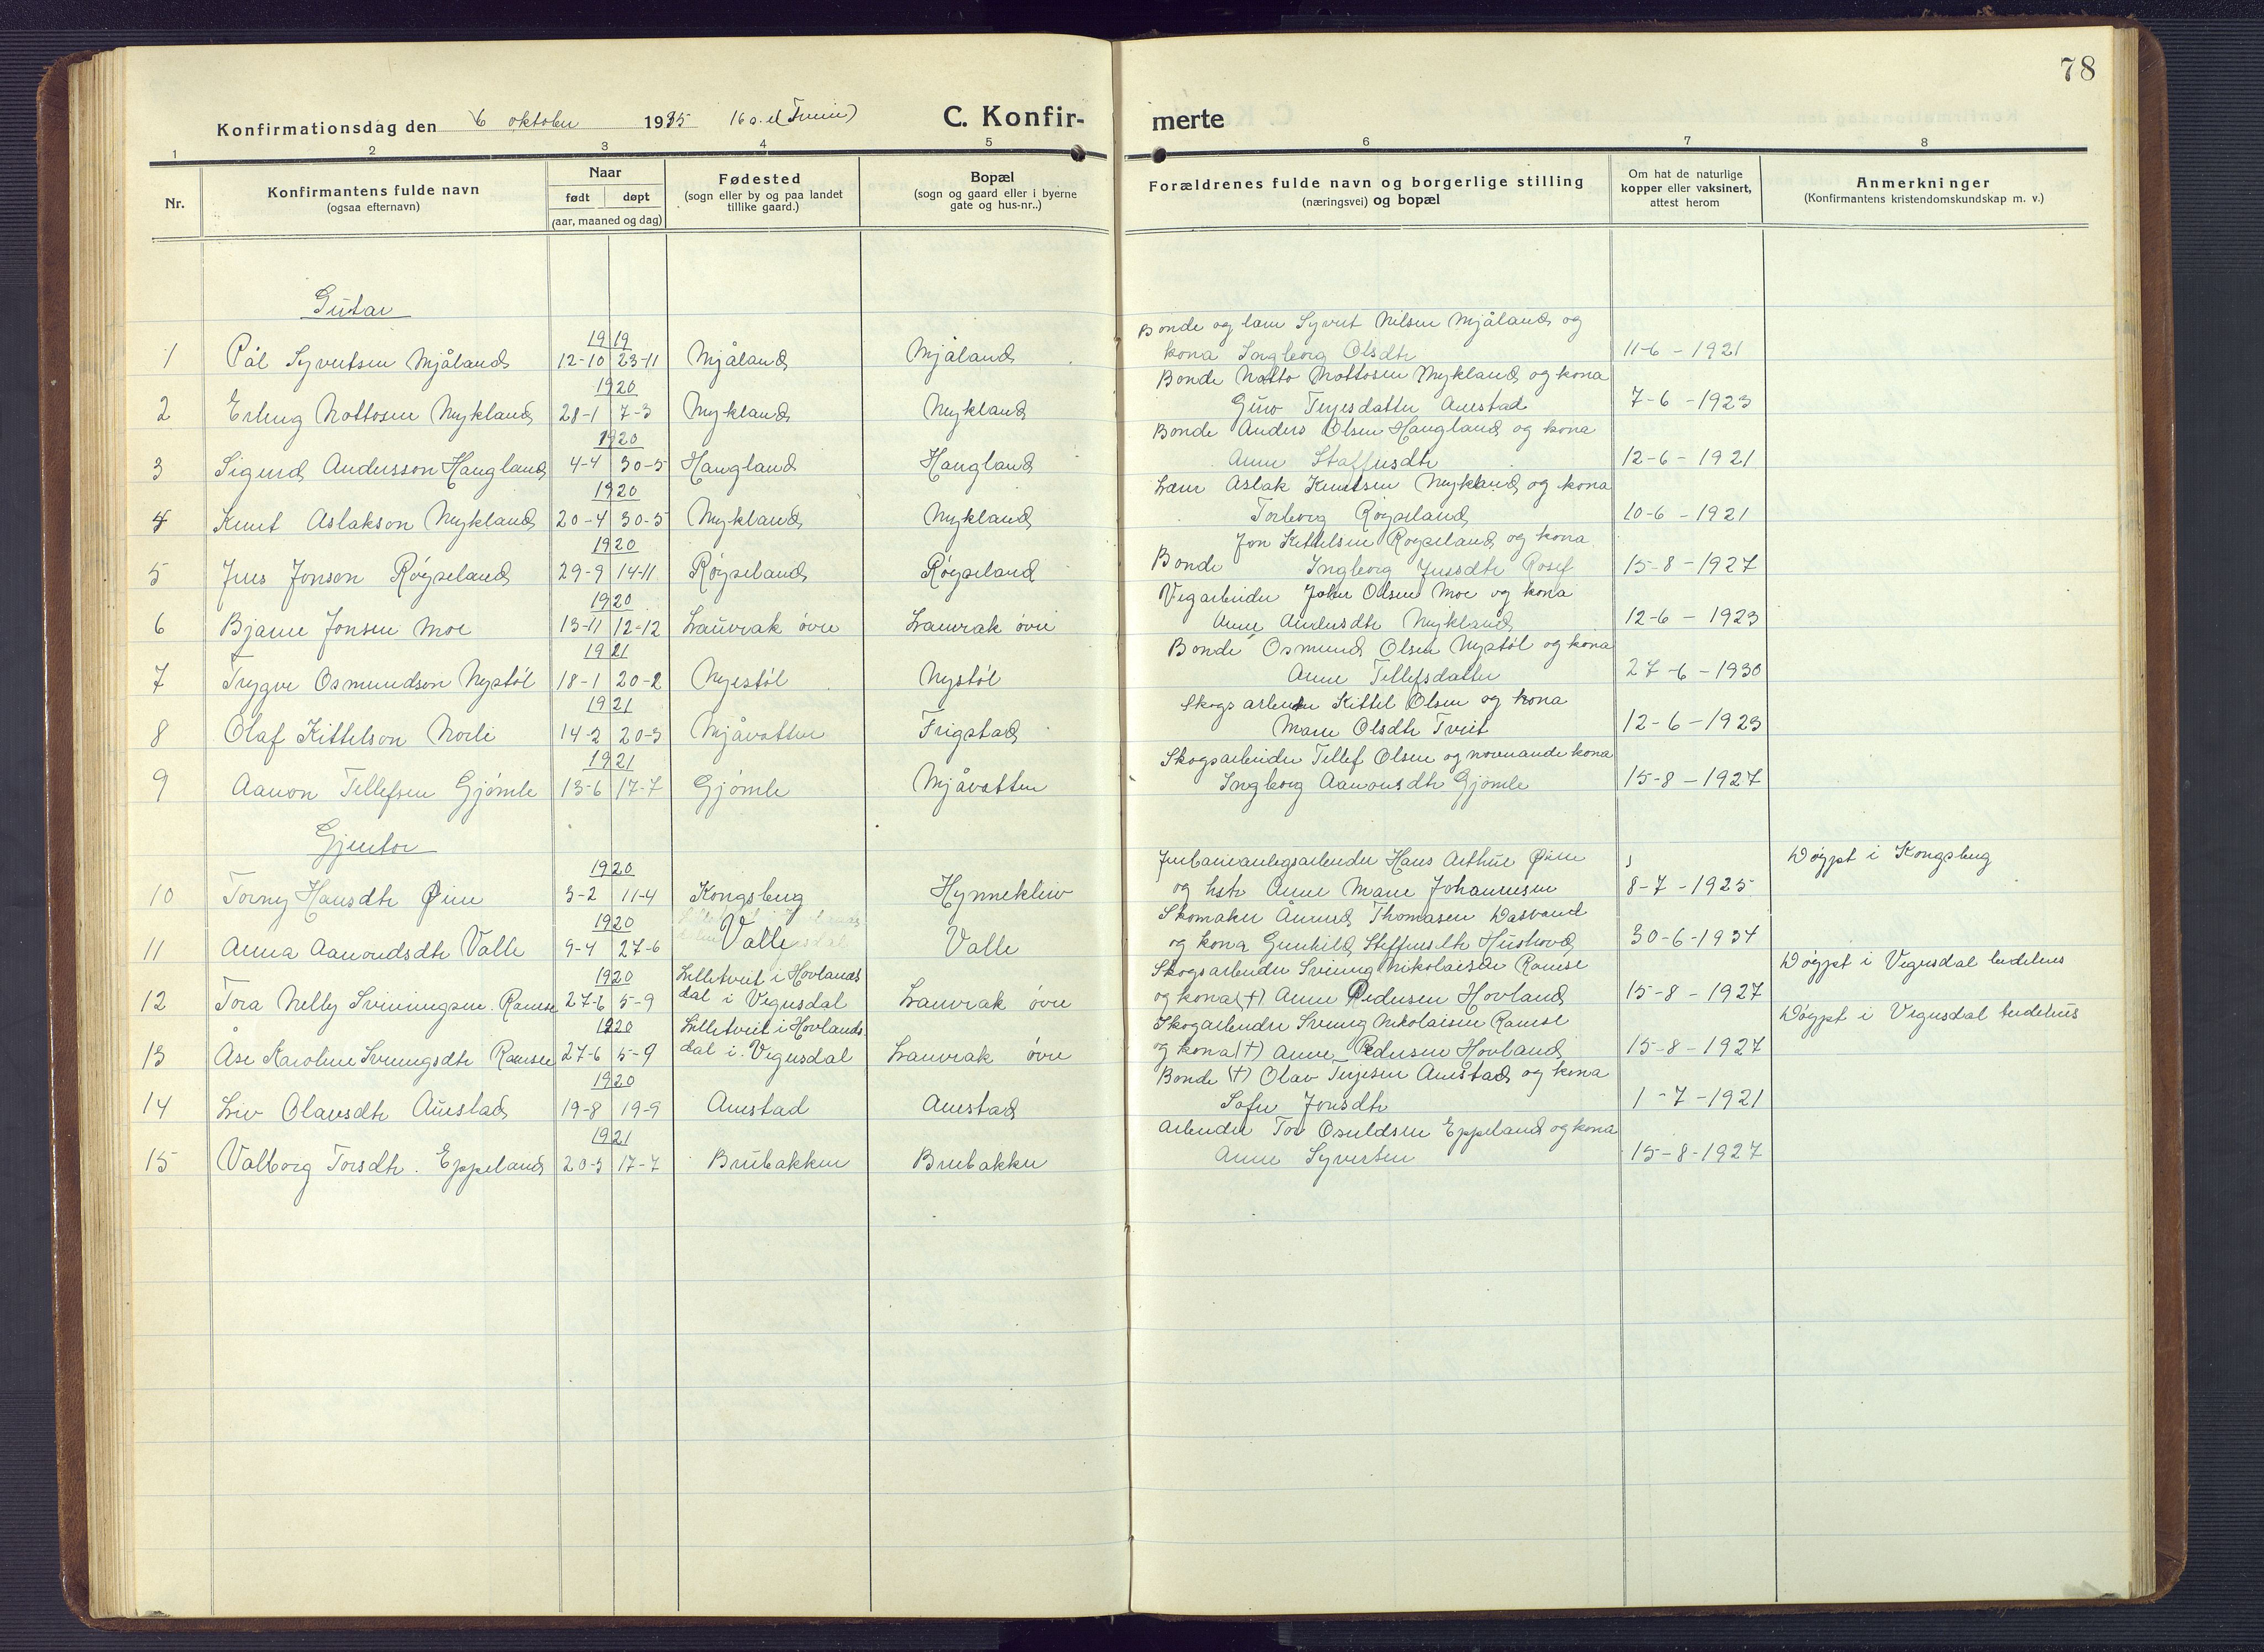 78
Konfirmationsdag den 6 oktober 1935 16 s. e.
C. Konfir-
merte
1 2 3 4 5 6 7 8
Nr.
Konfirmantens fulde navn
(ogsaa efternavn)
Naar
født døpt
(aar, maaned og dag)
Fødested
(sogn eller by og paa landet
tillike gaard.)
Bopæl
(sogn og gaard eller i byerne
gate og hus-nr..)
Forældrenes fulde navn og borgerlige stilling
(næringsvei) og bopæl
Om hat de naturlige
kopper eller vaksinert,
attest herom
Anmerkninger
(Konfirmantens kristendomskundskap m. v.)
Gutar
1919
Bonde og lærer Syvert Nilsen Mjåland og
1 Pål Syvertsen Mjåland 12-10 23-11 Mjåland Mjåland kona Ingeborg Olsdtr 11-6-1921
1920
Bonde Notto Nottosen Mykland og kona
2 Erling Nottosen Mykland 28-1 7-3 Mykland Mykland Guro Terjesdatter Auestad 7-6-1923
1920
Bonde Anders Olsen Haugland og kona
3 Sigurd Andersson Haugland 4-4 30-5 Haugland Haugland Anne Staffensdtr 12-6-1921
1920
Lærer Aslak Knutsen Mykland og kona
4 Knut Aslakson Mykland 20-4 30-5 Mykland Mykland Torborg Røyseland 10-6-1921
1920
Jon Kittelsen Røyseland og kona
5 Jens Jonson Røyseland 29-9 14-11 Røyseland Røyseland Bonde Ingeborg Jensdtr Rosef 15-8-1927
1920
Vegarbeider Olsen Moe og kona
6 Bjarne Jonsen Moe 13-11 12-12 Lauvrak øvre Lauvrak øvre Anne Andersdtr Mykland 12-6-1923
1921
Bonde Osmund Olsen Nystøl og kona
7 Trygve Osmundson Nystøl 18-1 20-2 Nyestøl Nystøl Anne Tellefsdatter 27-6-1930
1921
Skogsarbeider Kittel Olsen og kona
8 Olaf Kittelson Norli 14-2 20-3 Mjåvatten Frigstad Maren Olsdtr Tveit 12-6-1923
1921
Skogsarbeider Tellef Olsen og noverande kona
9 Aanon Tellefsen Gjømle 13-6 17-7 Gjømle Mjåvatten Ingeborg Aanonsdtr Gjømle 15-8-1927
Gjentor
1920
Jernbaneanlegsarbeider Hans Arthur Øien
Døypt i Kongsberg
10 Torny Hansdtr Øien 3-2 11-4 Kongsberg Hynnekleiv og hstr Anne Marie Johannesen 8-7-1925
1920
Skomaker Åmund Thomasen Dasvand
11 Anna Aamondsdtr Valle 9-4 27-6 Valle Valle og kona Gunhild Steffensdtr Hushovd 30-6-1934
1920 Lilletveit i Hovlands
Skogsarbeider Sveinung Nikolaisen Ramse
Døypt i Vegusdal
12 Tora Nelly Sveinungsen Ramse 27-6 5-9 dal i Vegusdal Lauvrak øvre og kona (†) Anne Pedersen Hovland 15-8-1927
1920 Lilletveit i Hovlands
Skogarbeider Sveinung Nikolaisen Ramse
Døypt i Vegusdal
13 Åse Karoline Sveinungsdtr Ramse 27-6 5-9 dal i Vegusdal Lauvrak øvre og kona (†) Anne Pedersen Hovland 15-8-1927
1920
Bonde (†) Olav Terjesen Auestad og kona
14 Liv Olavsdtr Auestad 19-8 19-9 Auestad Auestad Sofie Jonsdtr 1-7-1921
1921
Arbeider Tor Osuldsen Eppeland og kona
15 Valborg Torsdtr. Eppeland 20-5 17-7 Brubakken Brubakken Anne Syversen 15-8-1927